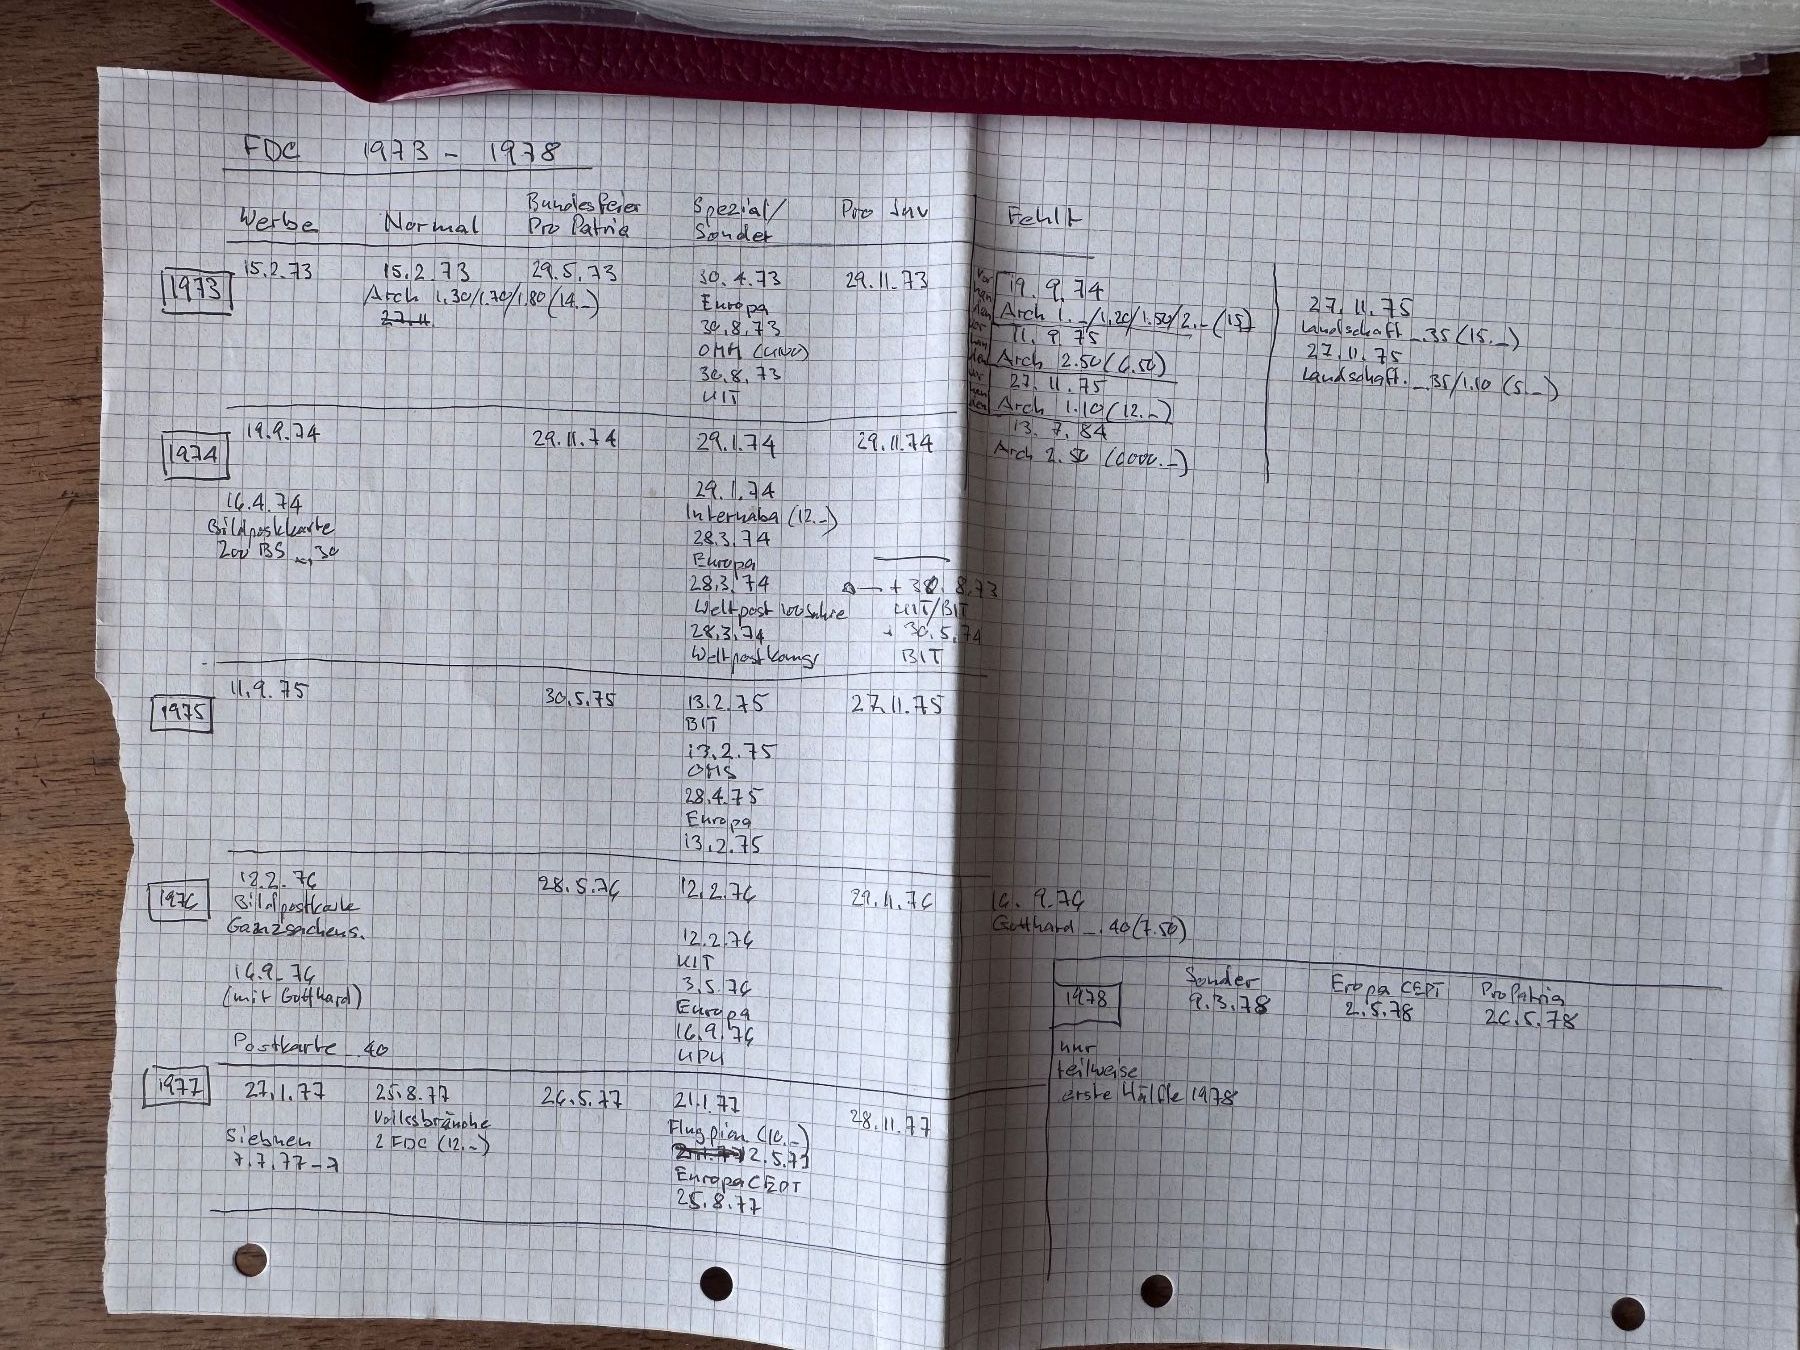 FDC 1973 - 1978
Werbe Normal Bundesfeier Pro Patria Spezial/ Sonder Pro Juv Fehlt
1973
15.2.73
15.2.73
Arch 1.30/1.70/1.80 (14.-)
27.11.
29.5.73
30.4.73
Europa
30.8.73
OMM (UNO)
30.8.73
UIT
29.11.73
vorhanden
19.9.74
Arch 1.-/1.20/1.50/2.- (15)
vorhanden
11.9.75
Arch 2.50 (6.50)
vorhanden
27.11.75
Arch 1.10 (12.-)
13.7.84
Arch 2.50
27.11.75
Landschaft -.35 (15.-)
27.11.75
Landschaft. -.35/1.10 (5.-)
1974
19.9.74
16.4.74
Bildpostkarte
200 BS -.30
29.11.74
29.1.74
29.1.74
Internaba (12.-)
28.3.74
Europa
28.3.74
Weltpost 100 Jahre
28.3.74
Weltpostkongr
29.11.74
+ 30.8.73
UIT/BIT
+ 30.5.74
BIT
1975
11.9.75
30.5.75
13.2.75
BIT
13.2.75
OMS
28.4.75
Europa
13.2.75
27.11.75
1976
12.2.76
Bildpostkarte
Ganzsachens.
16.9.76
(mit Gotthard)
Postkarte -.40
28.5.76
12.2.76
12.2.76
UIT
3.5.76
Europa
16.9.76
UPU
29.11.76
16.9.76
Gotthard -.40 (7.50)
1977
27.1.77
Siebnen
7.7.77-7
25.8.77
Volksbräuche
2 FDC (12.-)
26.5.77
27.1.77
Flugpion (10.-)
2.5.77
Europa CEPT
25.8.77
28.11.77
1978
nur
teilweise
erste Hälfte 1978
Sonder
9.3.78
Eropa CEPT
2.5.78
Pro Patria
26.5.78